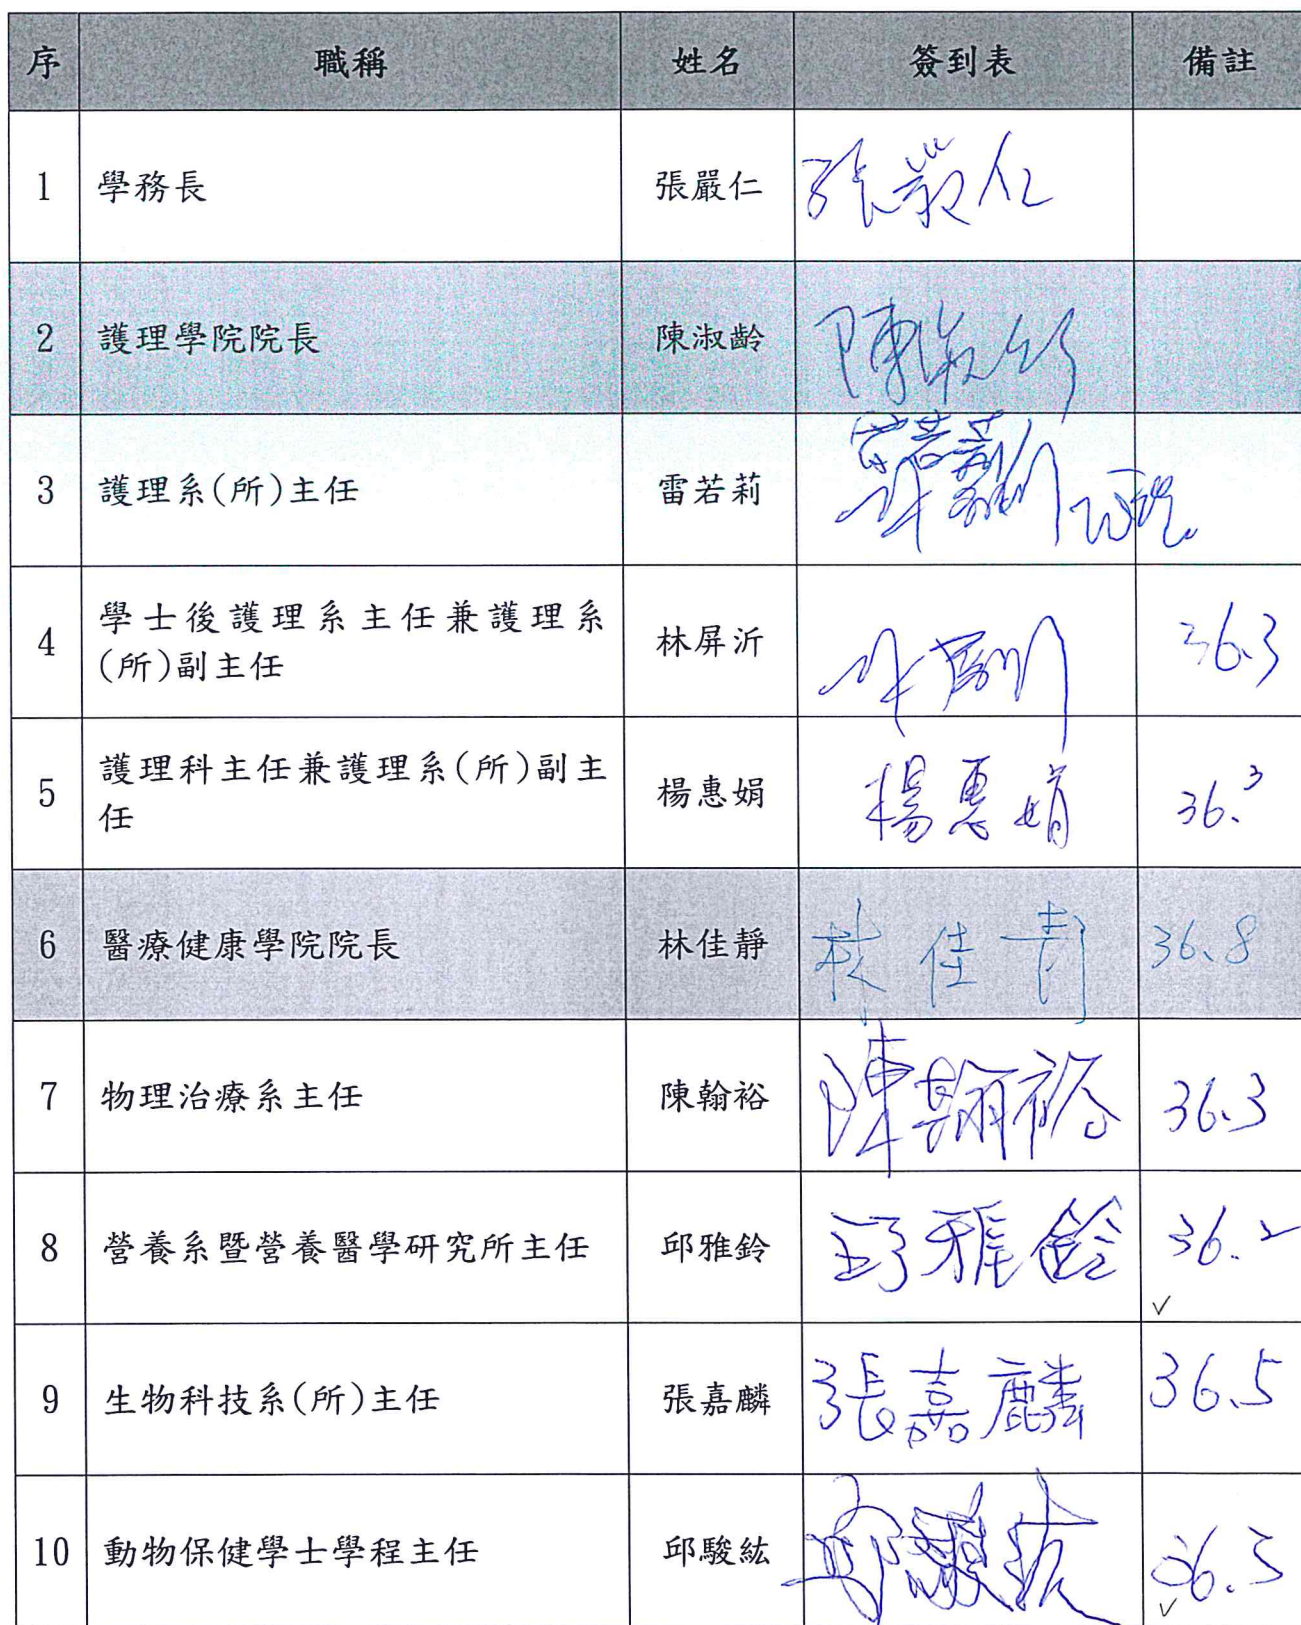 序 職稱 姓名 簽到表 備註
1 學務長 張嚴仁 張嚴仁
2 護理學院院長 陳淑齡 陳淑
3 護理系(所)主任 雷若莉 雷若莉
4 學士後護理系主任兼護理系
(所)副主任 林屏沂 36.3
5 護理科主任兼護理系(所)副主
任 楊惠娟 楊惠娟 36.3
6 醫療健康學院院長 林佳靜 林佳靜 36.8
7 物理治療系主任 陳翰裕 陳翰裕 36.3
8 營養系暨營養醫學研究所主任 邱雅鈴 邱雅鈴 36.2
9 生物科技系(所)主任 張嘉麟 張嘉麟 36.5
10 動物保健學士學程主任 邱駿紘 邱駿紘